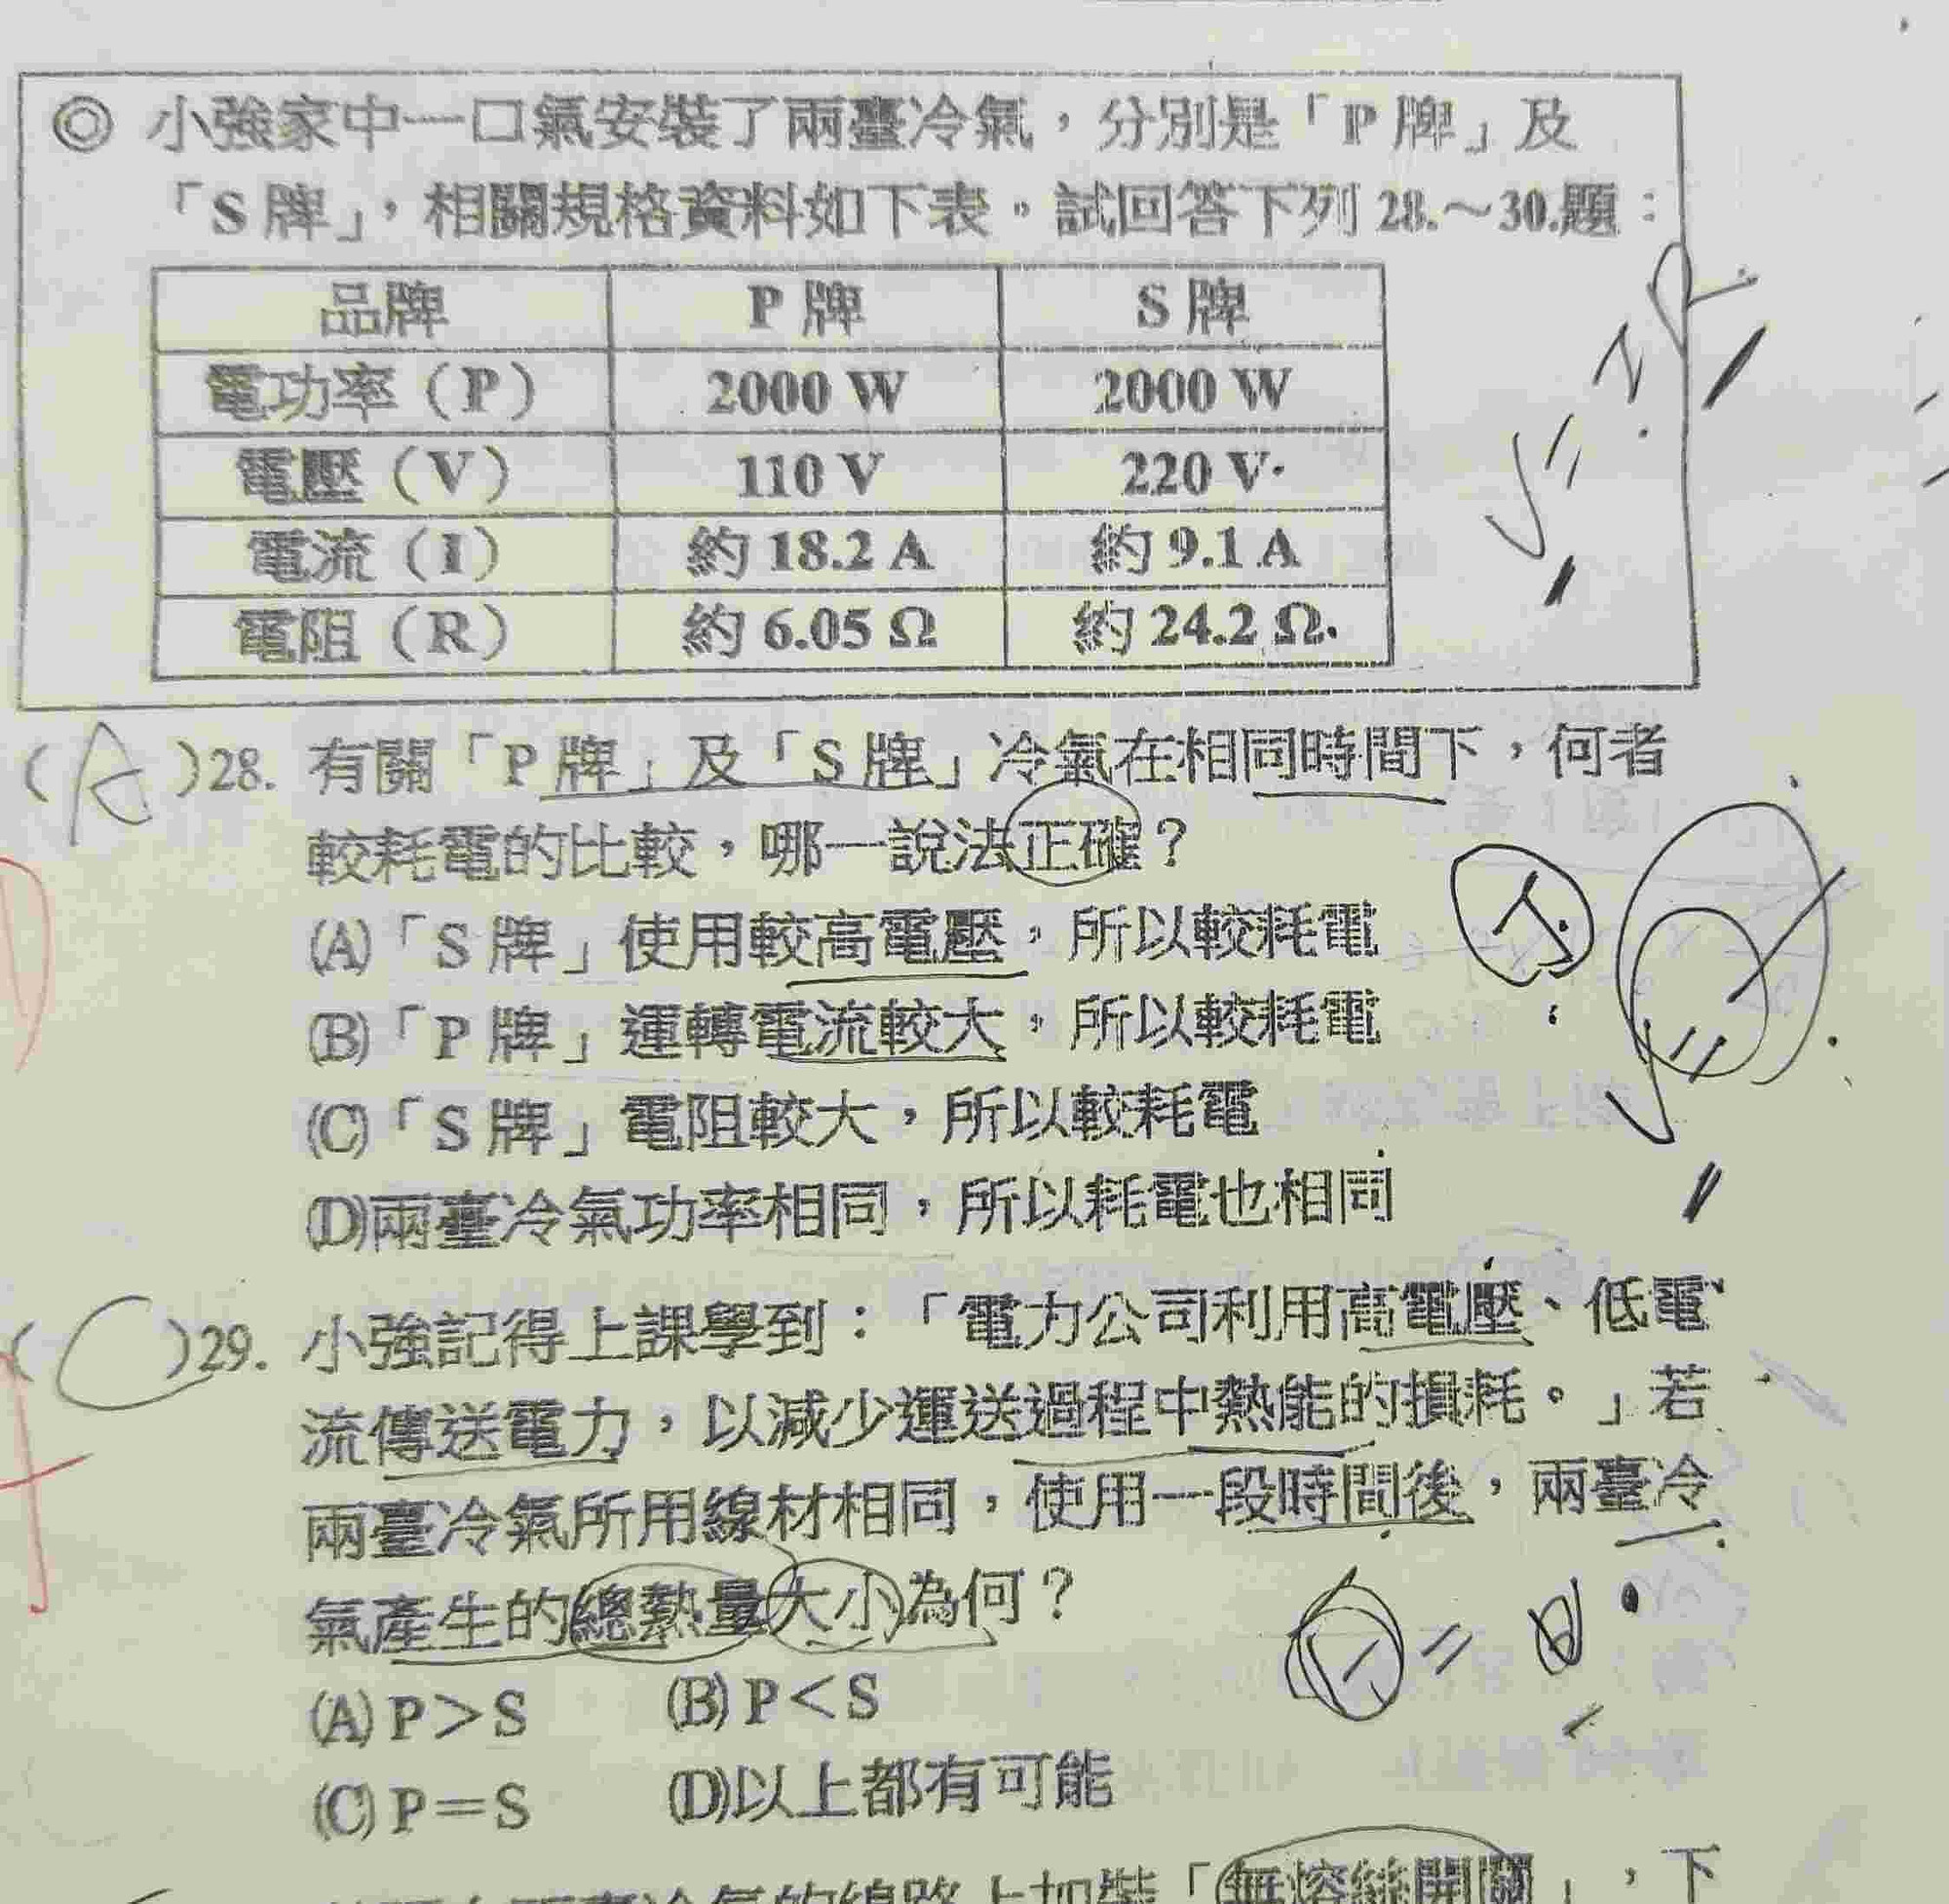 ◎ 小強家中一口氣安裝了兩臺冷氣，分別是「P 牌」及
「S 牌」，相關規格資料如下表。試回答下列 28.～30.題：
品牌 P 牌 S 牌
電功率（P） 2000 W 2000 W
電壓（V） 110 V 220 V
電流（I） 約 18.2 A 約 9.1 A
電阻（R） 約 6.05 Ω 約 24.2 Ω
(A)28. 有關「P 牌」及「S 牌」冷氣在相同時間下，何者
較耗電的比較，哪一說法正確？
(A)「S 牌」使用較高電壓，所以較耗電
(B)「P 牌」運轉電流較大，所以較耗電
(C)「S 牌」電阻較大，所以較耗電
(D)兩臺冷氣功率相同，所以耗電也相同
(C)29. 小強記得上課學到：「電力公司利用高電壓、低電
流傳送電力，以減少運送過程中熱能的損耗。」若
兩臺冷氣所用線材相同，使用一段時間後，兩臺冷
氣產生的總熱量大小為何？
(A) P＞S (B) P＜S
(C) P＝S (D)以上都有可能
兩臺冷氣的線路上加裝「無熔絲開關」，下